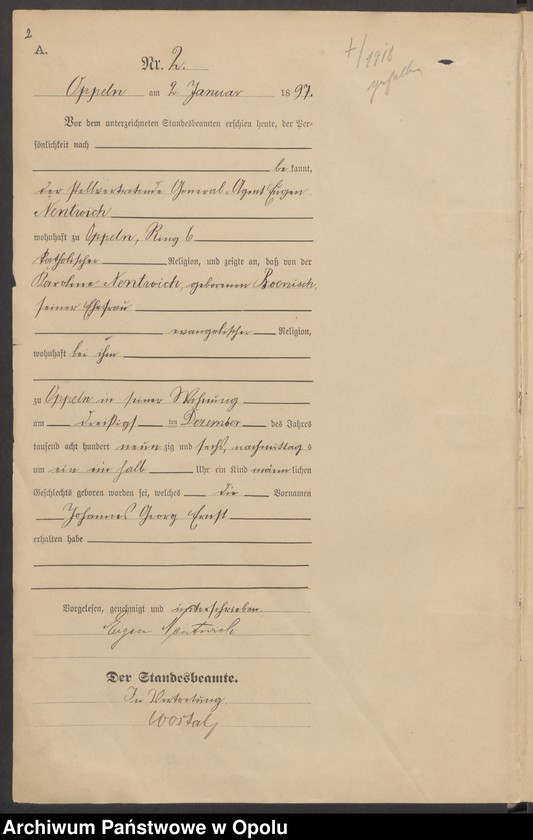 2
A.
Nr. 2.
+/1918
gefallen
Oppeln am 2 Januar 1897.
Vor dem unterzeichneten Standesbeamten erschien heute, der Per-
sönlichkeit nach
be kannt,
der stellvertretende General-Agent Eugen
Nentwich
wohnhaft zu Oppeln, Ring 6
katholischer Religion, und zeigte an, daß von der
Karoline Nentwich, geborenen Boenisch,
seiner Ehefrau
evangelischer Religion,
wohnhaft bei ihm
zu Oppeln in seiner Wohnung
am dreißigsten Dezember des Jahres
tausend acht hundert neun zig und sechs, nachmittag s
um ein ein halb Uhr ein Kind männ lichen
Geschlechts geboren worden sei, welches die Vornamen
Johannes Georg Ernst
erhalten habe
Vorgelesen, genehmigt und unterschrieben.
Eugen Nentwich
Der Standesbeamte.
In Vertretung.
Wostal
Archiwum Państwowe w Opolu